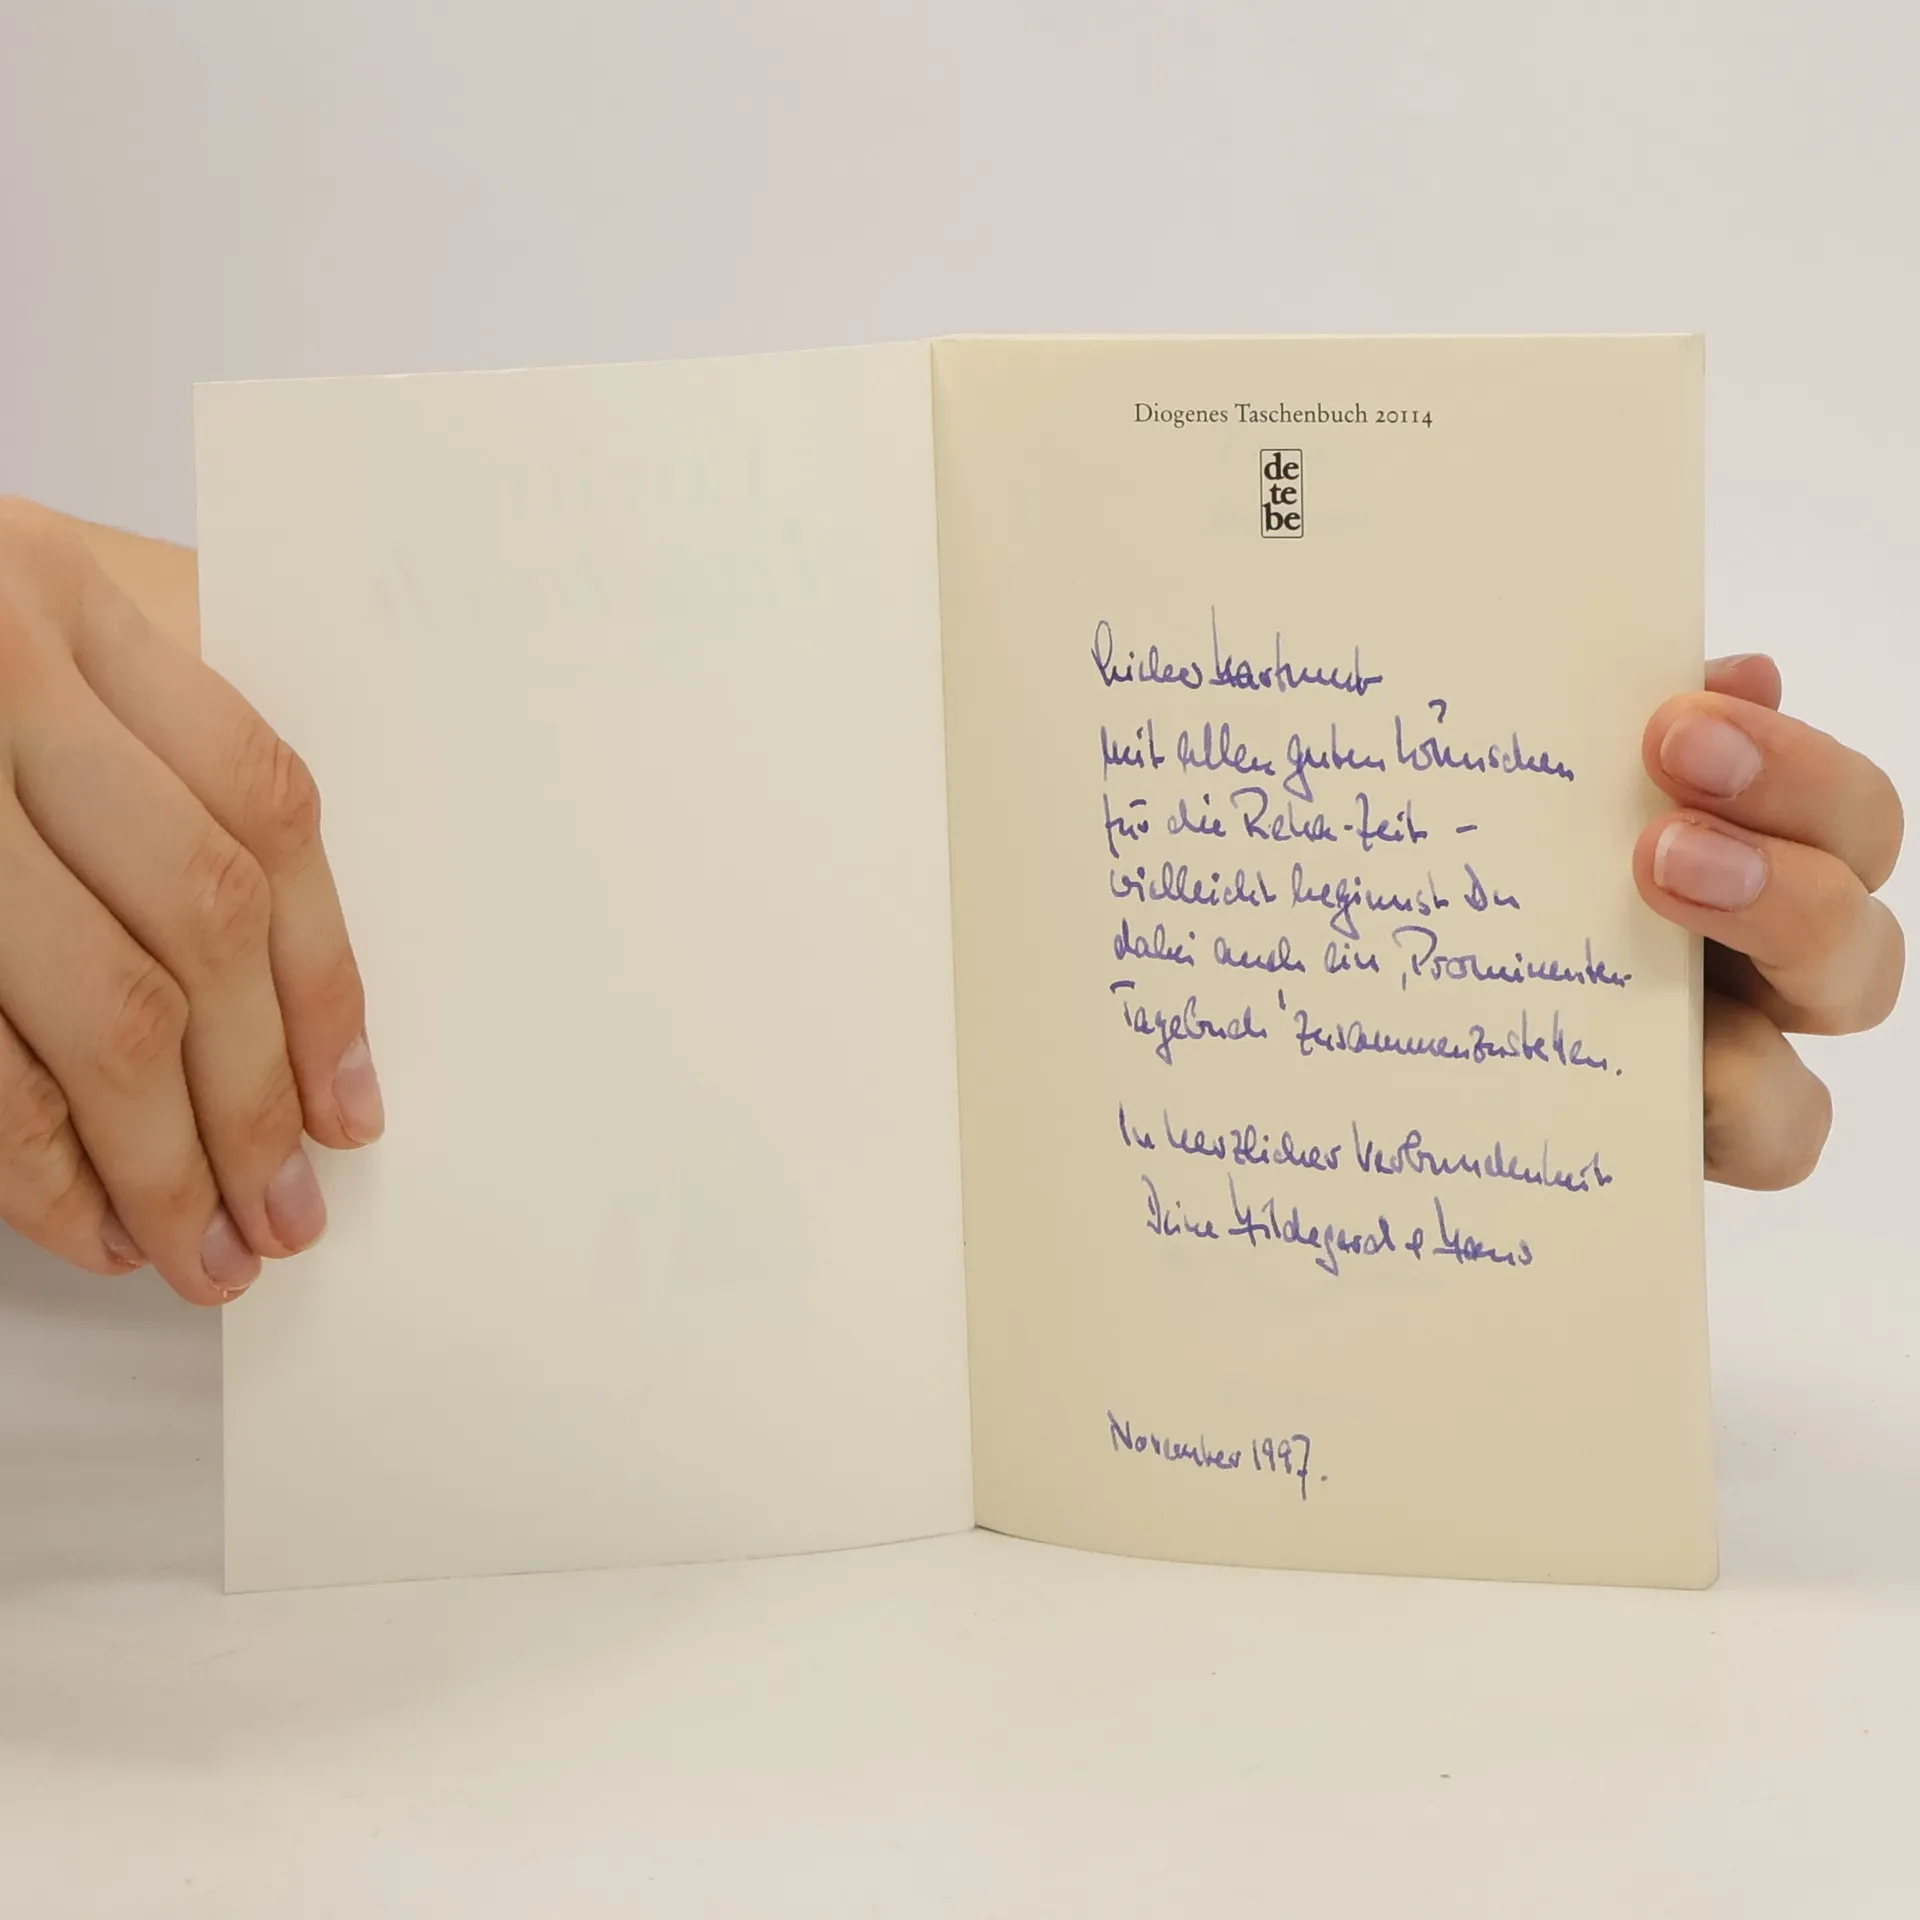 Diogenes Taschenbuch 20114
de
te
be
Lieber Hartmut
mit allen guten Wünschen
für die Reha-Zeit –
vielleicht beginnst Du
dabei auch ein ‚Prominenten-
Tagebuch' zusammenzustellen.
In herzlicher Verbundenheit
Deine Hildegard + Hans
November 1997.